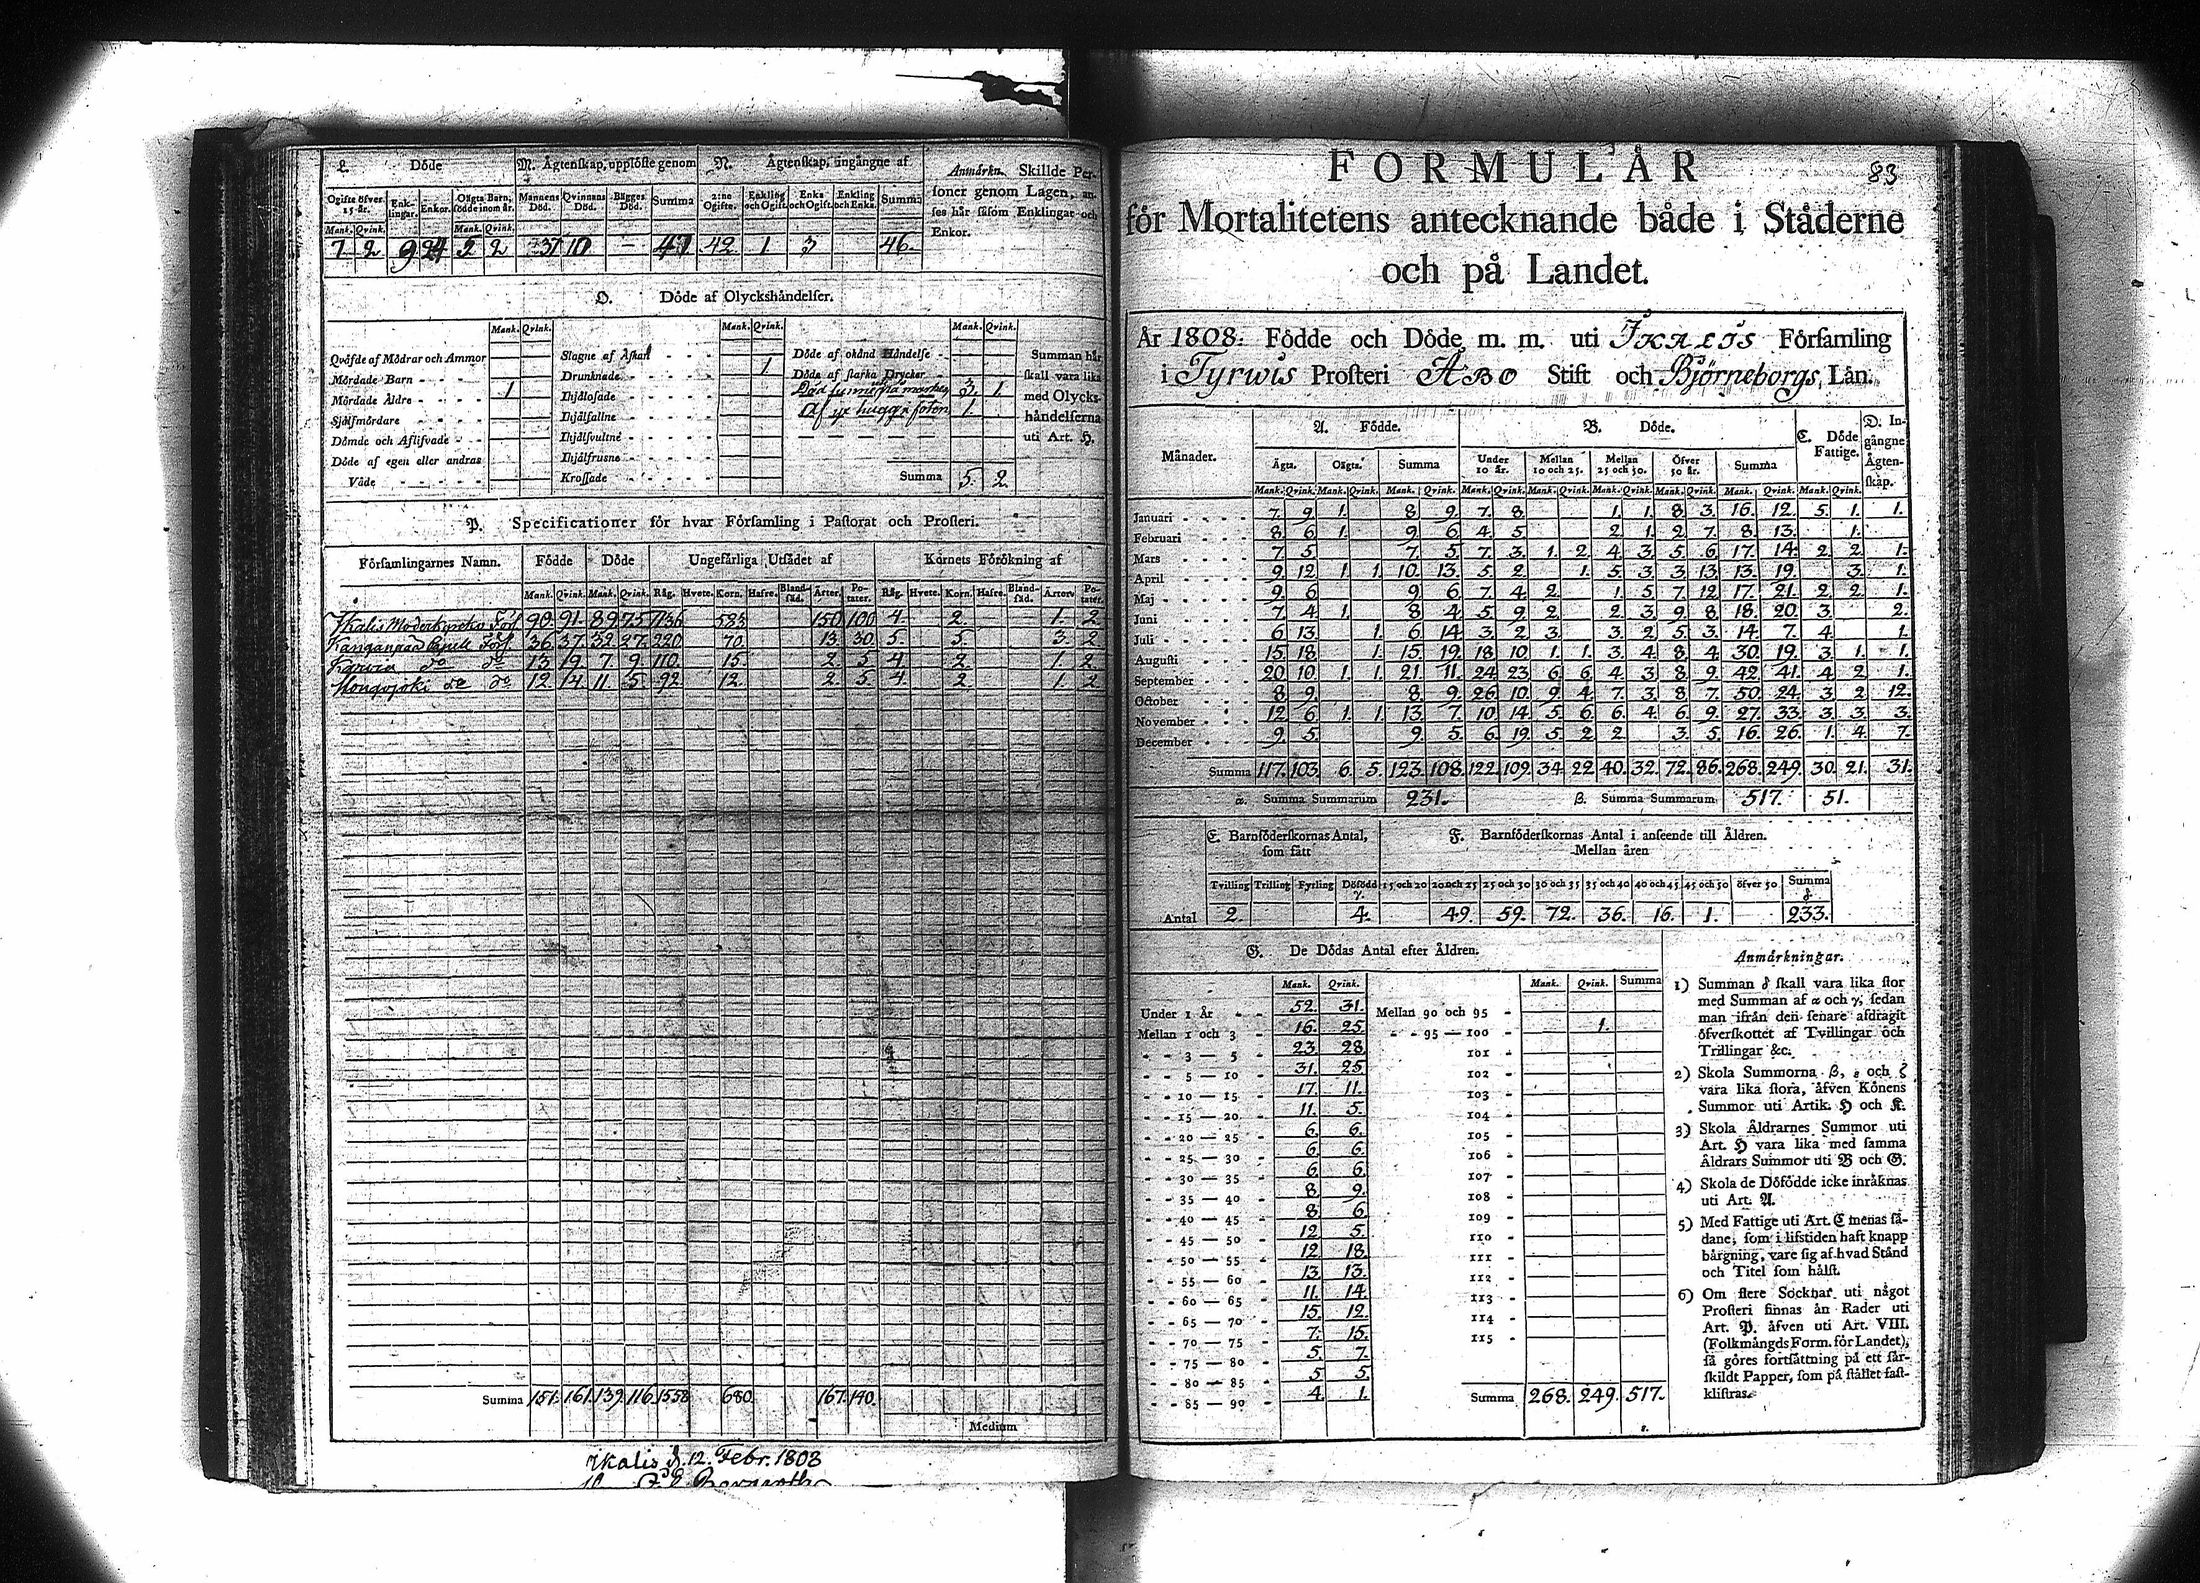 L. Döde
M. Ägtenskap, upplöste genom
N. Ägtenskap, ingångne af
Anmärkn. Skillde Personer genom Lagen, anses här såsom Enklingar och Enkor.
Ogifte öfver 15 år. Enklingar. Enkor. Oägta Barn, födde inom år. Mannens Död. Qvinnans Död. Bägges Död. Summa 2:ne Ogifte. Enkling och Ogift. Enka och Ogift. Enkling och Enka. Summa
Mank. Qvink. Mank. Qvink.
7 2 9 24 5 2 37 10 — 47 42 1 3 46.
O. Döde af Olyckshändelser.
Mank. Qvink. Mank. Qvink. Mank. Qvink.
Qväfde af Mödrar och Ammor
Mördade Barn - - - 1
Mördade Äldre - - -
Sjelfmördare - - - -
Dömde och Aflifvade - -
Döde af egen eller andras
Våde - - - - -
Slagne af Åskan - - -
Drunknade - - - - 1
Ihjälosade - - - -
Ihjälfallne - - - -
Ihjälsvultne - - - -
Ihjälfrusne - - - -
Krossade - - - -
Döde af okänd Händelse -
Döde af starka Drycker -
3. 1.
Af yx hugg i foten 1.
Summa 5. 2.
Summan här
skall vara lika
med Olycks-
händelserna
uti Art. H.
P. Specificationer för hvar Församling i Pastorat och Prosteri.
Församlingarnes Namn. Födde Döde Ungefärliga Utsädet af Kornets Förökning af
Mank. Qvink. Mank. Qvink. Råg. Hvete. Korn. Hafre. Blandsäd. Ärter. Potater. Råg. Hvete. Korn. Hafre. Blandsäd. Ärter. Potater.
Ikalis Moderkyrko Förs. 90. 91. 89. 75. 1136. 583 150 100 4. 2. 1. 2
Kanganpää Capell Förs. 36. 37. 32. 27. 220 70. 13. 30 5. 5. 3. 2
Karvia do do 13. 19. 7. 9. 110. 15. 2. 5. 4. 2. 1. 2
HonGojoki do do 12. 14. 11. 5. 92. 12. 2. 5. 4. 2. 1. 2
Summa 151. 161. 139. 116. 1558 680. 167. 140.
Medium
Ikalis d. 12. Febr. 1803
FORMULÄR
83
för Mortalitetens antecknande både i Städerne
och på Landet.
År 1808. Födde och Döde m. m. uti IKALIS Församling
i Tyrwis Prosteri ÅBO Stift och Björneborgs Län.
Månader. A. Födde. B. Döde. C. Döde Fattige. D. Ingångne Ägtenskap.
Ägta. Oägta. Summa Under 10 år. Mellan 10 och 25. Mellan 25 och 50. Öfver 50 år. Summa
Mank. Qvink. Mank. Qvink. Mank. Qvink. Mank. Qvink. Mank. Qvink. Mank. Qvink. Mank. Qvink. Mank. Qvink. Mank. Qvink.
Januari - - - - 7. 9. 1. 8. 9. 7. 8. 1. 1. 8. 3. 16. 12. 5. 1. 1.
Februari - - - 8. 6. 1. 9. 6. 4. 5. 2. 1. 2. 7. 8. 13. 1.
Mars - - - - 7. 5. 7. 5. 7. 3. 1. 2. 4. 3. 5. 6. 17. 14. 2. 2. 1.
April - - - - 9. 12. 1. 1. 10. 13. 5. 2. 1. 5. 3. 3. 13. 13. 19. 3. 1.
Maj - - - - 9. 6. 9. 6. 7. 4. 2. 1. 5. 7. 12. 17. 21. 2. 2. 1.
Juni - - - - 7. 4. 1. 8. 4. 5. 9. 2. 2. 3. 9. 8. 18. 20. 3. 2.
Juli - - - - 6. 13. 1. 6. 14. 3. 2. 3. 3. 2. 5. 3. 14. 7. 4. 1.
Augusti - - - 15. 18. 1. 15. 19. 18. 10. 1. 1. 3. 4. 8. 4. 30. 19. 3. 1. 1.
September - - - 20. 10. 1. 1. 21. 11. 24. 23. 6. 6. 4. 3. 8. 9. 42. 41. 4. 2. 1.
October - - - 8. 9. 8. 9. 26. 10. 9. 4. 7. 3. 8. 7. 50. 24. 3. 2. 12.
November - - - 12. 6. 1. 1. 13. 7. 10. 14. 5. 6. 6. 4. 6. 9. 27. 33. 3. 3. 3.
December - - - 9. 5. 9. 5. 6. 19. 5. 2. 2. 3. 5. 16. 26. 1. 4. 7.
Summa 117. 103. 6. 5. 123. 108. 122. 109. 34. 22. 40. 32. 72. 86. 268. 249. 30. 21. 31.
α. Summa Summarum 231. β. Summa Summarum 517. 51.
E. Barnföderskornas Antal, som fått
F. Barnföderskornas Antal i anseende till Åldren.
Mellan åren
Tvilling Trilling Fyrling Döfödd γ. 15 och 20 20 och 25 25 och 30 30 och 35 35 och 40 40 och 45 45 och 50 öfver 50 Summa δ
Antal 2. 4. 49. 59. 72. 36. 16. 1. 233.
G. De Dödas Antal efter Åldren.
Mank. Qvink. Mank. Qvink. Summa
Under 1 År - - 52. 31.
Mellan 1 och 3 - 16. 25.
- - 3 — 5 - 23. 28.
- - 5 — 10 - 31. 25
- - 10 — 15 - 17. 11.
- - 15 — 20 - 11. 5.
- - 20 — 25 - 6. 6.
- - 25 — 30 - 6. 6.
- - 30 — 35 - 6. 6.
- - 35 — 40 - 8. 9.
- - 40 — 45 - 8. 6.
- - 45 — 50 - 12. 5.
- - 50 — 55 - 12. 18.
- - 55 — 60 - 13. 13.
- - 60 — 65 - 11. 14.
- - 65 — 70 - 15. 12.
- - 70 — 75 - 7. 15.
- - 75 — 80 - 5. 7.
- - 80 — 85 - 5 5.
- - 85 — 90 - 4. 1.
Mellan 90 och 95 -
- - 95 — 100 - 1.
101 -
102 -
103 -
104 -
105 -
106 -
107 -
108 -
109 -
110 -
111 -
112 -
113 -
114 -
115 -
Summa 268. 249. 517.
ε.
Anmärkningar.
1) Summan δ skall vara lika stor
med Summan af α och γ, sedan
man ifrån den senare afdragit
öfverskottet af Tvillingar och
Trillingar &c.
2) Skola Summorna β, ε och ζ
vara lika stora, äfven Könens
Summor uti Artik. H och K.
3) Skola Åldrarnes Summor uti
Art. H vara lika med samma
Åldrars Summor uti B och G.
4) Skola de Döfödde icke inräknas
uti Art. A.
5) Med Fattige uti Art. C menas så-
dane, som i lifstiden haft knapp
bärgning, vare sig af hvad Stånd
och Titel som hälst.
6) Om flere Socknar uti något
Prosteri finnas än Rader uti
Art. P. äfven uti Art. VIII.
(Folkmängds Form. för Landet),
så göres fortsättning på ett sär-
skildt Papper, som på stället fast-
klistras.